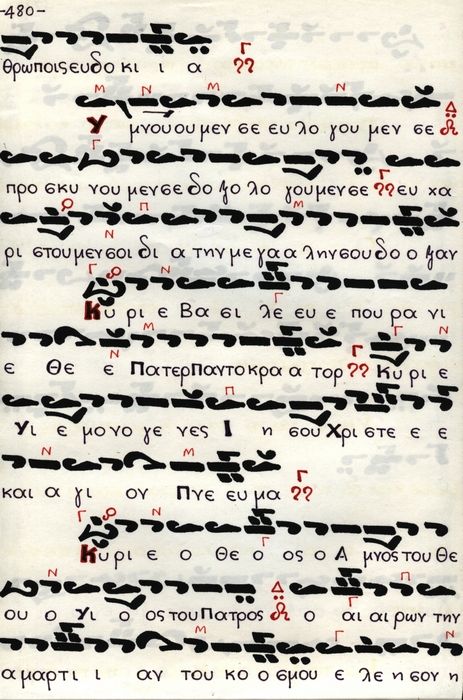 -480-
θρωποις ευδο κι ι α
Υ μνουουμεν σε ευ λο γου μεν σε
προ σκυ νου μεν σε δο ξο λο γουμεν σε ευ χα
ρι στουμεν σοι δι α την με γα α λην σου δο ο ξαν
Κυ ρι ε Βα σι λε ευ ε που ρα νι
ε Θε ε Πατερ Παντοκρα α τορ Κυ ρι ε
Υι ε μο νο γε νες Ι η σου Χρι στε ε ε
και α γι ον Πνε ευ μα
Κυ ρι ε ο Θε ο ος ο Α μνος του Θε
ου ο Υι ο ος του Πατρος ο αι αι ρων την
α μαρτι ι αν του κο ο σμου ε λε η σον η